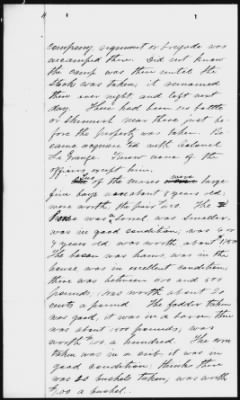 company regiment or brigade was
encamped there. Did not know
the camp was then until the
stock was taken; it remained
there over night, and left next
day. There had been no battle
or skirmish near there just be-
fore the property was taken. Be-
came acquainted with Colonel
La Grange. Knew none of the
officers except him.
One of the mares were large
fine bays was about 8 years old;
were worth the pair. The
was a sorrel was smaller,
was in good condition; was 6 or
7 years old was worth about
The bacon was hams, was in the
house, was in excellent condition,
there was between 500 and 600
pounds; was worth about 20
cents a pound. The fodder taken
was good, it was in a barn there
was about 1500 pounds, was
worth a hundred. The corn
taken was in a crib it was in
good condition; thinks there
was 20 bushels taken, was worth
a bushel.